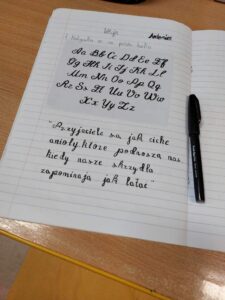 Aa Bb Cc Dd Ee Ff
Gg Hh Ii Jj Kk Ll
Mm Nn Oo Pp Qq
Rr Ss Tt Uu Vv Ww
Xx Yy Zz
"Przyjaciele są jak ciche
anioły, które podnoszą nas
kiedy nasze skrzydła
zapominają jak latać"